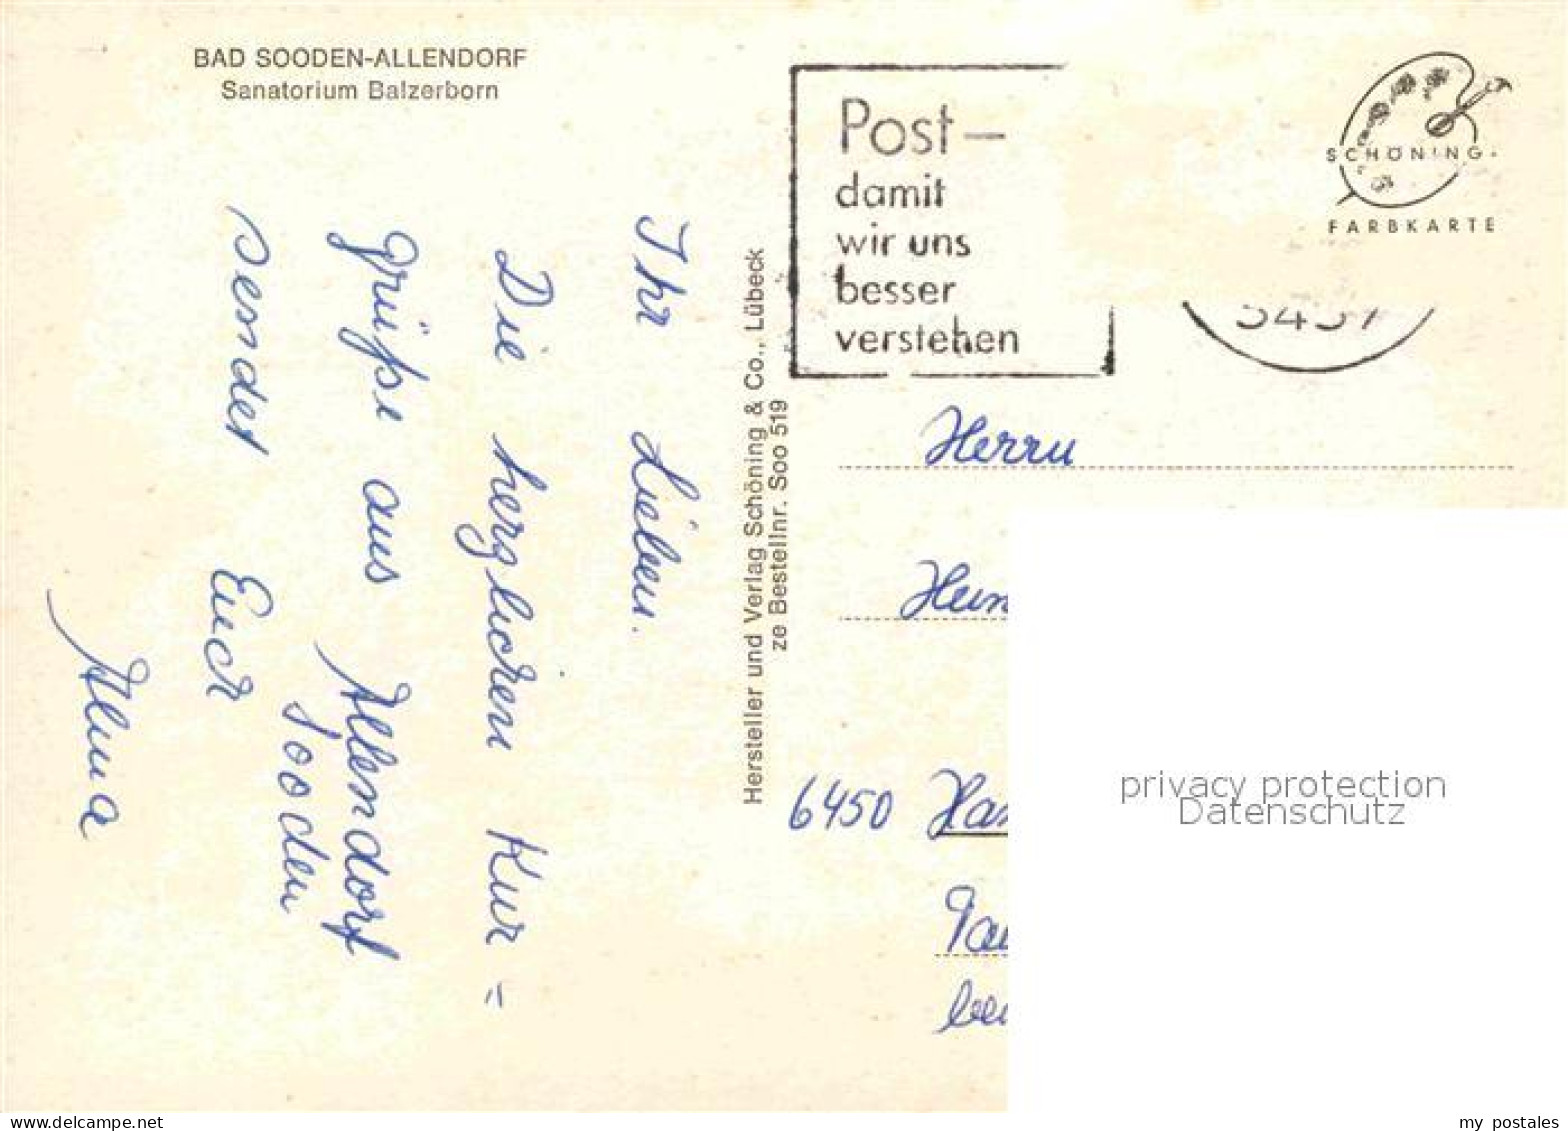 BAD SOODEN-ALLENDORF
Sanatorium Balzerborn
Ihr Lieben.
Die herzlichen Kur =
grüße aus Allendorf
Sooden
sendet Euch
Alma
Hersteller und Verlag Schöning & Co., Lübeck
ze Bestellnr. Soo 519
Post –
damit
wir uns
besser
verstehen
SCHÖNING-
FARBKARTE
3437
Herrn
6450
privacy protection
Datenschutz
my postales